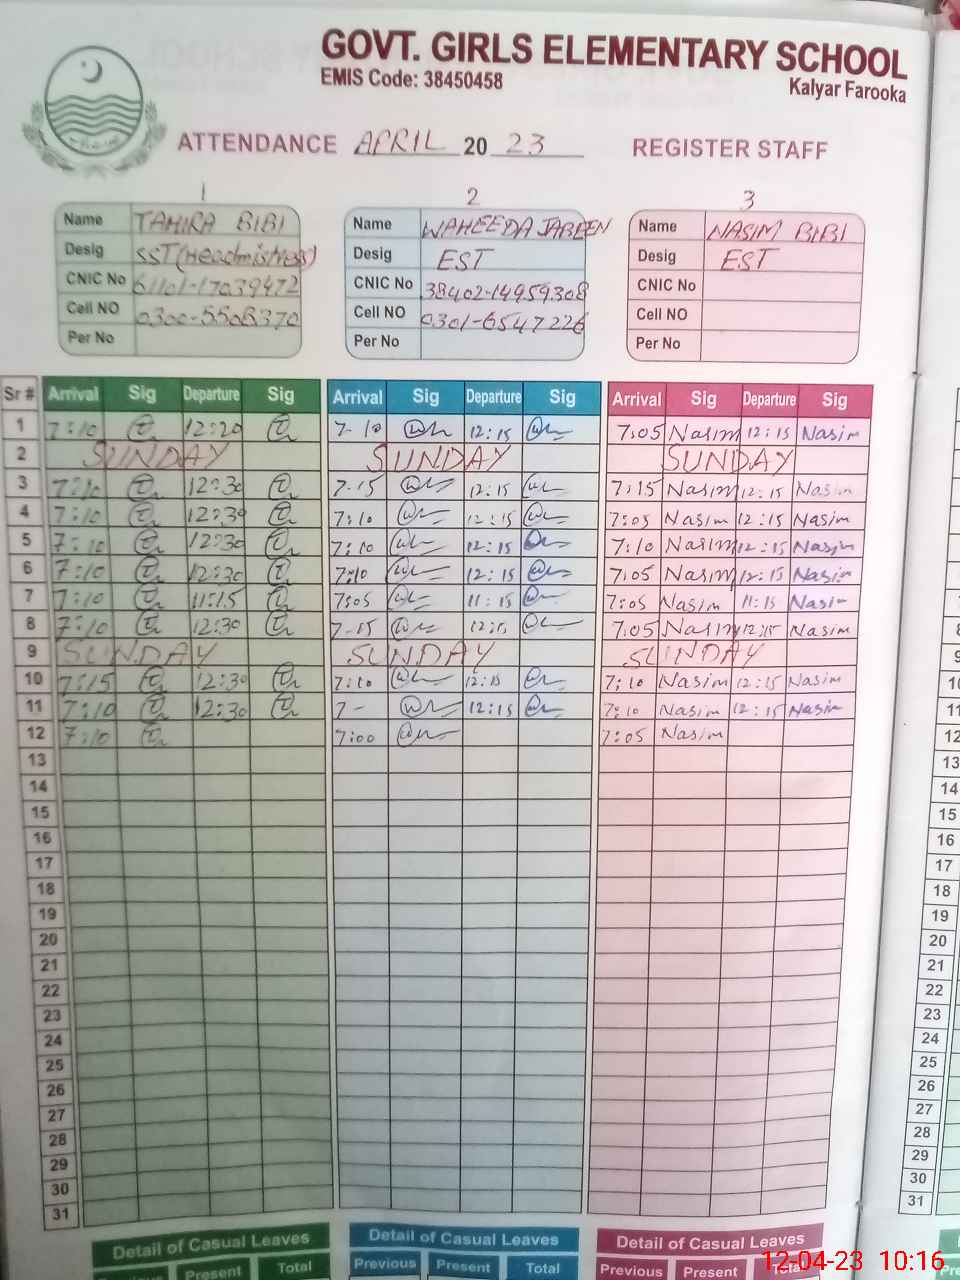 GOVT. GIRLS ELEMENTARY SCHOOL
EMIS Code: 38450458
Kalyar Farooka
ATTENDANCE APRIL 20 23 REGISTER STAFF
1 2 3
Name TAHIRA BIBI Name WAHEEDA JABEEN Name NASIM BIBI
Desig SST(Headmistress) Desig EST Desig EST
CNIC No 61101-17039472 CNIC No 38402-14959308 CNIC No
Cell NO 0300-5508370 Cell NO 0301-6547226 Cell NO
Per No Per No Per No
Sr # Arrival Sig Departure Sig Arrival Sig Departure Sig Arrival Sig Departure Sig
1 7:10 12:20 7-10 12:15 7.05 Nasim 12:15 Nasim
2 SUNDAY SUNDAY SUNDAY
3 7:10 12:30 7-15 12:15 7:15 Nasim 12:15 Nasim
4 7:10 12:30 7:10 12:15 7:05 Nasim 12:15 Nasim
5 7:10 12:30 7:10 12:15 7:10 Nasim 12:15 Nasim
6 7:10 12:30 7:10 12:15 7.05 Nasim 12:15 Nasim
7 7:10 11:15 7:05 11:15 7:05 Nasim 11:15 Nasim
8 7:10 12:30 7-15 7.05 Nasim 12:15 Nasim
9 SUNDAY SUNDAY SUNDAY
10 7:15 12:30 7:10 12:15 7:10 Nasim 12:15 Nasim
11 7:10 12:30 7- 12:15 7:10 Nasim 12:15 Nasim
12 7:10 7:00 7:05 Nasim
13
14
15
16
17
18
19
20
21
22
23
24
25
26
27
28
29
30
31
Detail of Casual Leaves Detail of Casual Leaves Detail of Casual Leaves
Previous Present Total Previous Present Total Previous Present Total
12-04-23 10:16